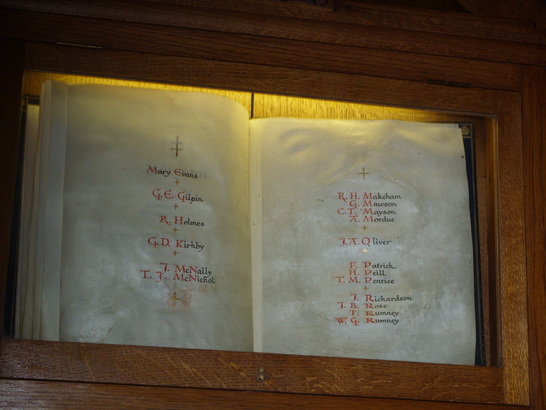 Mary Evans
G.E. Gilpin
R. Holmes
G.D. Kirkby
J. McNally
T. J. McNichol
R. H. Makeham
G. Mawson
C.T. Mayson
A. Mordue
J.A. Oliver
F. Patrick
H. Pell
T. M. Penrice
J. Richardson
J. B. Rose
T. Rumney
W. G. Rumney